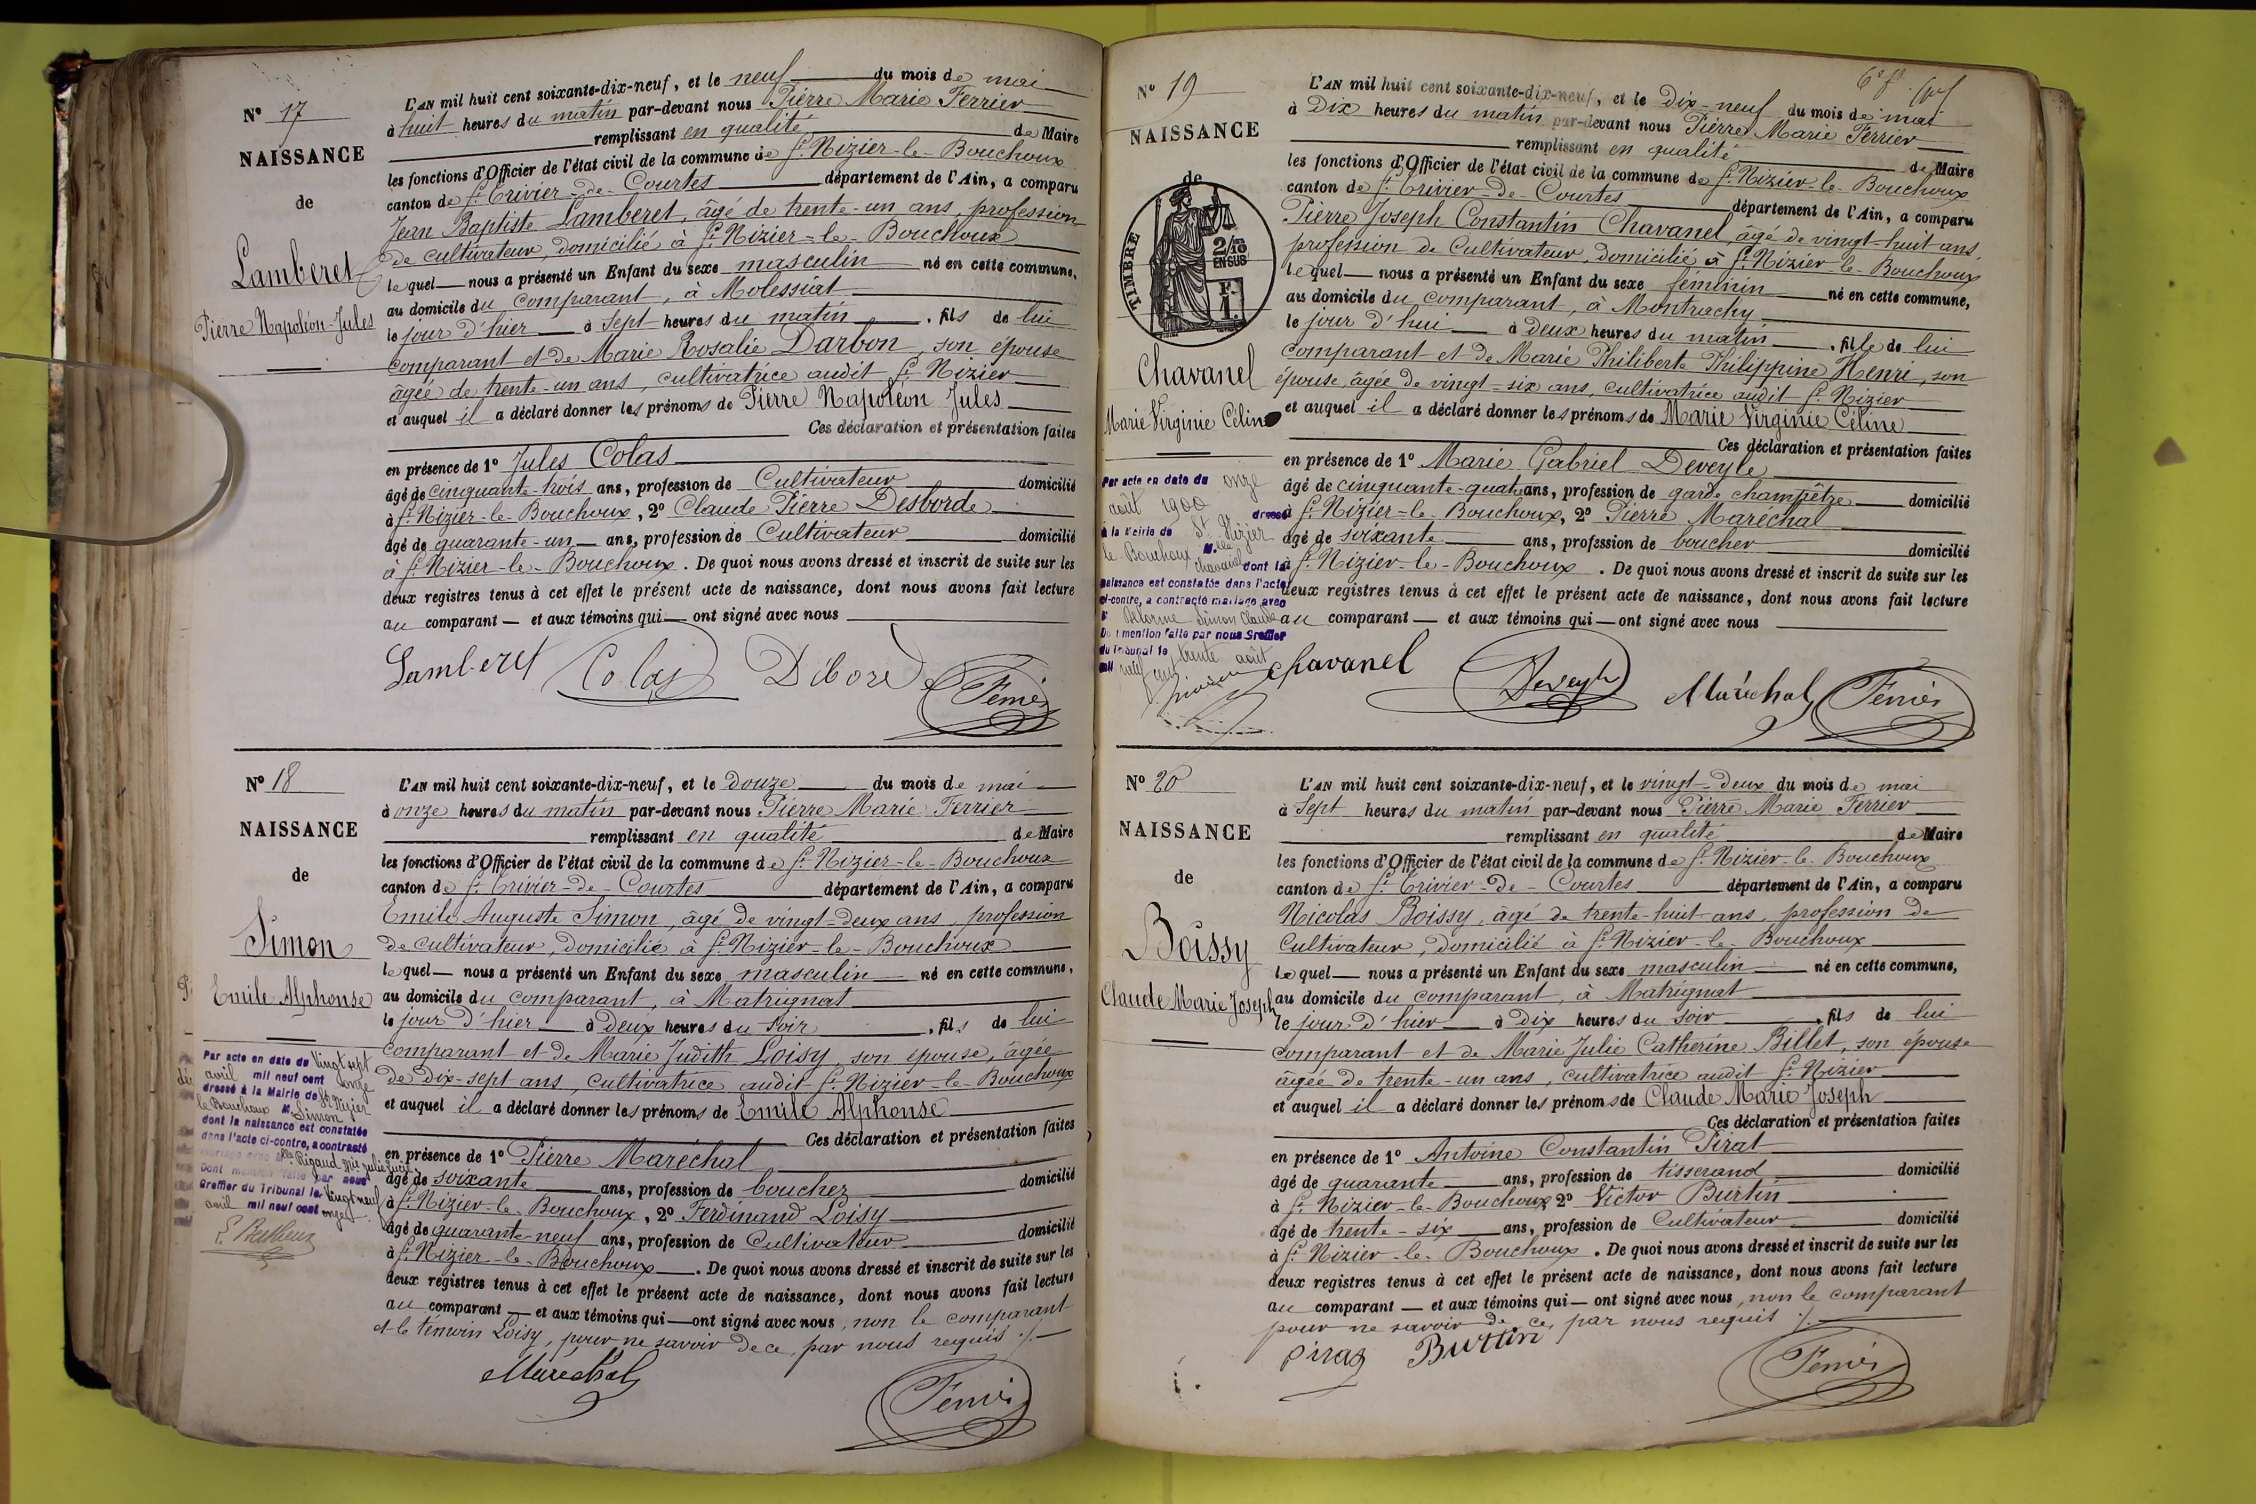 N° 17
NAISSANCE
de
Lamberet
Pierre Napoléon Jules
L'AN mil huit cent soixante-dix-neuf, et le neuf du mois de mai
à huit heures du matin par-devant nous Pierre Marie Ferrier
remplissant en qualité de Maire
les fonctions d'Officier de l'état civil de la commune de St Nizier-le-Bouchoux
canton de St Trivier-de-Courtes département de l'Ain, a comparu
Jean Baptiste Lamberet, âgé de trente-un ans, profession
de cultivateur, domicilié à St Nizier-le-Bouchoux
lequel nous a présenté un Enfant du sexe masculin né en cette commune,
au domicile du comparant, à Molessiat
le jour d'hier à sept heures du matin, fils de lui
comparant et de Marie Rosalie Darbon, son épouse
âgée de trente-un ans, cultivatrice audit St Nizier
et auquel il a déclaré donner les prénoms de Pierre Napoléon Jules
Ces déclaration et présentation faites
en présence de 1° Jules Colas
âgé de cinquante-trois ans, profession de Cultivateur domicilié
à St Nizier-le-Bouchoux, 2° Claude Pierre Desborde
âgé de quarante-un ans, profession de Cultivateur domicilié
à St Nizier-le-Bouchoux. De quoi nous avons dressé et inscrit de suite sur les
deux registres tenus à cet effet le présent acte de naissance, dont nous avons fait lecture
au comparant et aux témoins qui ont signé avec nous
Lamberet Colas Débord Ferrier
N° 18
NAISSANCE
de
Simon
Emile Alphonse
Par acte en date du Vingt sept
avril mil neuf cent onze
dressé à la Mairie de St Nizier
le Bouchoux M. Simon
dont la naissance est constatée
dans l'acte ci-contre, a contracté
mariage avec Mlle Rigaud Mie Julie Lucie
Dont mention faite par nous
Greffier du Tribunal le Vingt neuf
avril mil neuf cent onze
L'AN mil huit cent soixante-dix-neuf, et le douze du mois de mai
à onze heures du matin par-devant nous Pierre Marie Ferrier
remplissant en qualité de Maire
les fonctions d'Officier de l'état civil de la commune de St Nizier-le-Bouchoux
canton de St Trivier-de-Courtes département de l'Ain, a comparu
Emile Auguste Simon, âgé de vingt-deux ans, profession
de cultivateur, domicilié à St Nizier-le-Bouchoux
lequel nous a présenté un Enfant du sexe masculin né en cette commune,
au domicile du comparant, à Matrignat
le jour d'hier à deux heures du soir, fils de lui
comparant et de Marie Judith Loisy, son épouse, âgée
de dix-sept ans, cultivatrice audit St Nizier-le-Bouchoux
et auquel il a déclaré donner les prénoms de Emile Alphonse
Ces déclaration et présentation faites
en présence de 1° Pierre Maréchal
âgé de soixante ans, profession de boucher domicilié
à St Nizier-le-Bouchoux, 2° Ferdinand Loisy
âgé de quarante-neuf ans, profession de Cultivateur domicilié
à St Nizier-le-Bouchoux. De quoi nous avons dressé et inscrit de suite sur les
deux registres tenus à cet effet le présent acte de naissance, dont nous avons fait lecture
au comparant et aux témoins qui ont signé avec nous, non le comparant
et le témoin Loisy, pour ne savoir de ce, par nous requis ./.
Maréchal
Ferrier
6e ft
N° 19
NAISSANCE
de
TIMBRE
2/10 EN SUS
F. 1.
Chavanel
Marie Virginie Céline
Par acte en date du onze
août 1900 dressé
à la Mairie de St Nizier
le Bouchoux Mlle Chavanel dont la
naissance est constatée dans l'acte
ci-contre, a contracté mariage avec
M. Delorme Simon Claude
Dont mention faite par nous Greffier
du Tribunal le trente août
mil neuf cent
L'AN mil huit cent soixante-dix-neuf, et le Dix-neuf du mois de mai
à Dix heures du matin par-devant nous Pierre Marie Ferrier
remplissant en qualité de Maire
les fonctions d'Officier de l'état civil de la commune de St Nizier-le-Bouchoux
canton de St Trivier-de-Courtes département de l'Ain, a comparu
Pierre Joseph Constantin Chavanel, âgé de vingt-huit ans,
profession de Cultivateur, domicilié à St Nizier-le-Bouchoux
lequel nous a présenté un Enfant du sexe féminin né en cette commune,
au domicile du comparant, à Montrachy
le jour d'hui à deux heures du matin, fille de lui
comparant et de Marie Philiberte Philippine Henri, son
épouse, âgée de vingt-six ans, cultivatrice audit St Nizier
et auquel il a déclaré donner les prénoms de Marie Virginie Céline
Ces déclaration et présentation faites
en présence de 1° Marie Gabriel Deveyle
âgé de cinquante-quatre ans, profession de garde champêtre domicilié
à St Nizier-le-Bouchoux, 2° Pierre Maréchal
âgé de soixante ans, profession de boucher domicilié
à St Nizier-le-Bouchoux. De quoi nous avons dressé et inscrit de suite sur les
deux registres tenus à cet effet le présent acte de naissance, dont nous avons fait lecture
au comparant et aux témoins qui ont signé avec nous
Chavanel Deveyle Maréchal Ferrier
N° 20
NAISSANCE
de
Boissy
Claude Marie Joseph
L'AN mil huit cent soixante-dix-neuf, et le vingt-deux du mois de mai
à Sept heures du matin par-devant nous Pierre Marie Ferrier
remplissant en qualité de Maire
les fonctions d'Officier de l'état civil de la commune de St Nizier-le-Bouchoux
canton de St Trivier-de-Courtes département de l'Ain, a comparu
Nicolas Boissy, âgé de trente-huit ans, profession de
Cultivateur, domicilié à St Nizier-le-Bouchoux
lequel nous a présenté un Enfant du sexe masculin né en cette commune,
au domicile du comparant, à Matrignat
le jour d'hier à dix heures du soir, fils de lui
comparant et de Marie Julie Catherine Billet, son épouse
âgée de trente-un ans, cultivatrice audit St Nizier
et auquel il a déclaré donner les prénoms de Claude Marie Joseph
Ces déclaration et présentation faites
en présence de 1° Antoine Constantin Pirat
âgé de quarante ans, profession de tisserand domicilié
à St Nizier-le-Bouchoux 2° Victor Burtin
âgé de trente-six ans, profession de Cultivateur domicilié
à St Nizier-le-Bouchoux. De quoi nous avons dressé et inscrit de suite sur les
deux registres tenus à cet effet le présent acte de naissance, dont nous avons fait lecture
au comparant et aux témoins qui ont signé avec nous, non le comparant
pour ne savoir de ce, par nous requis ./.
Piraz Burtin
Ferrier